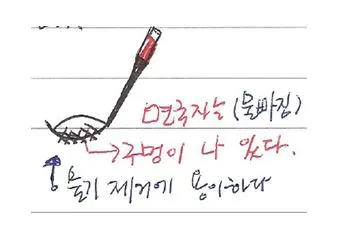 면국자는 (물빠짐)
→구멍이 나 있다.
↑물기 제거에 용이하다